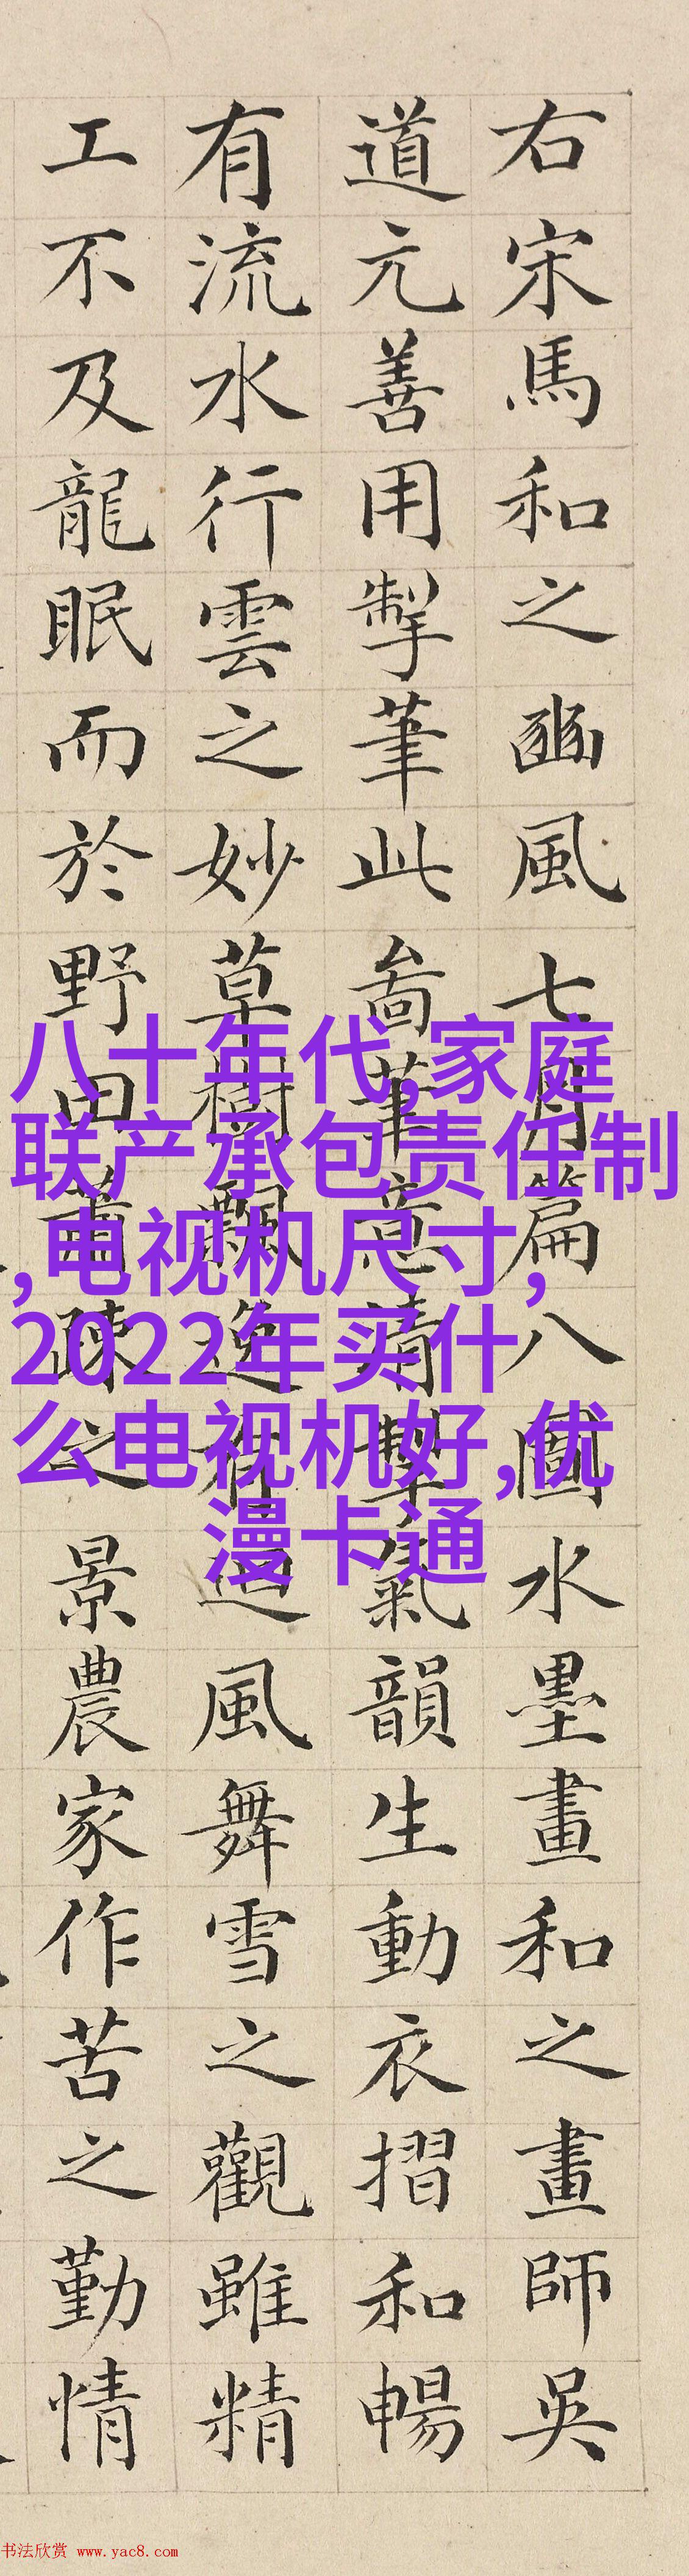 右宋馬和之豳風七月篇八圖水墨畫和之畫師吳
道元善用掣筆此啚筆意清氣韻生動衣摺和暢
有流水行雲之妙草樹飄逸有迴風舞雪之觀雖精
工不及龍眠而於野田蕭疎之景農家作苦之勤情
八十年代,家庭
联产承包责任制
,电视机尺寸,
2022年买什
么电视机好,优
漫卡通
书法欣赏 www.yac8.com